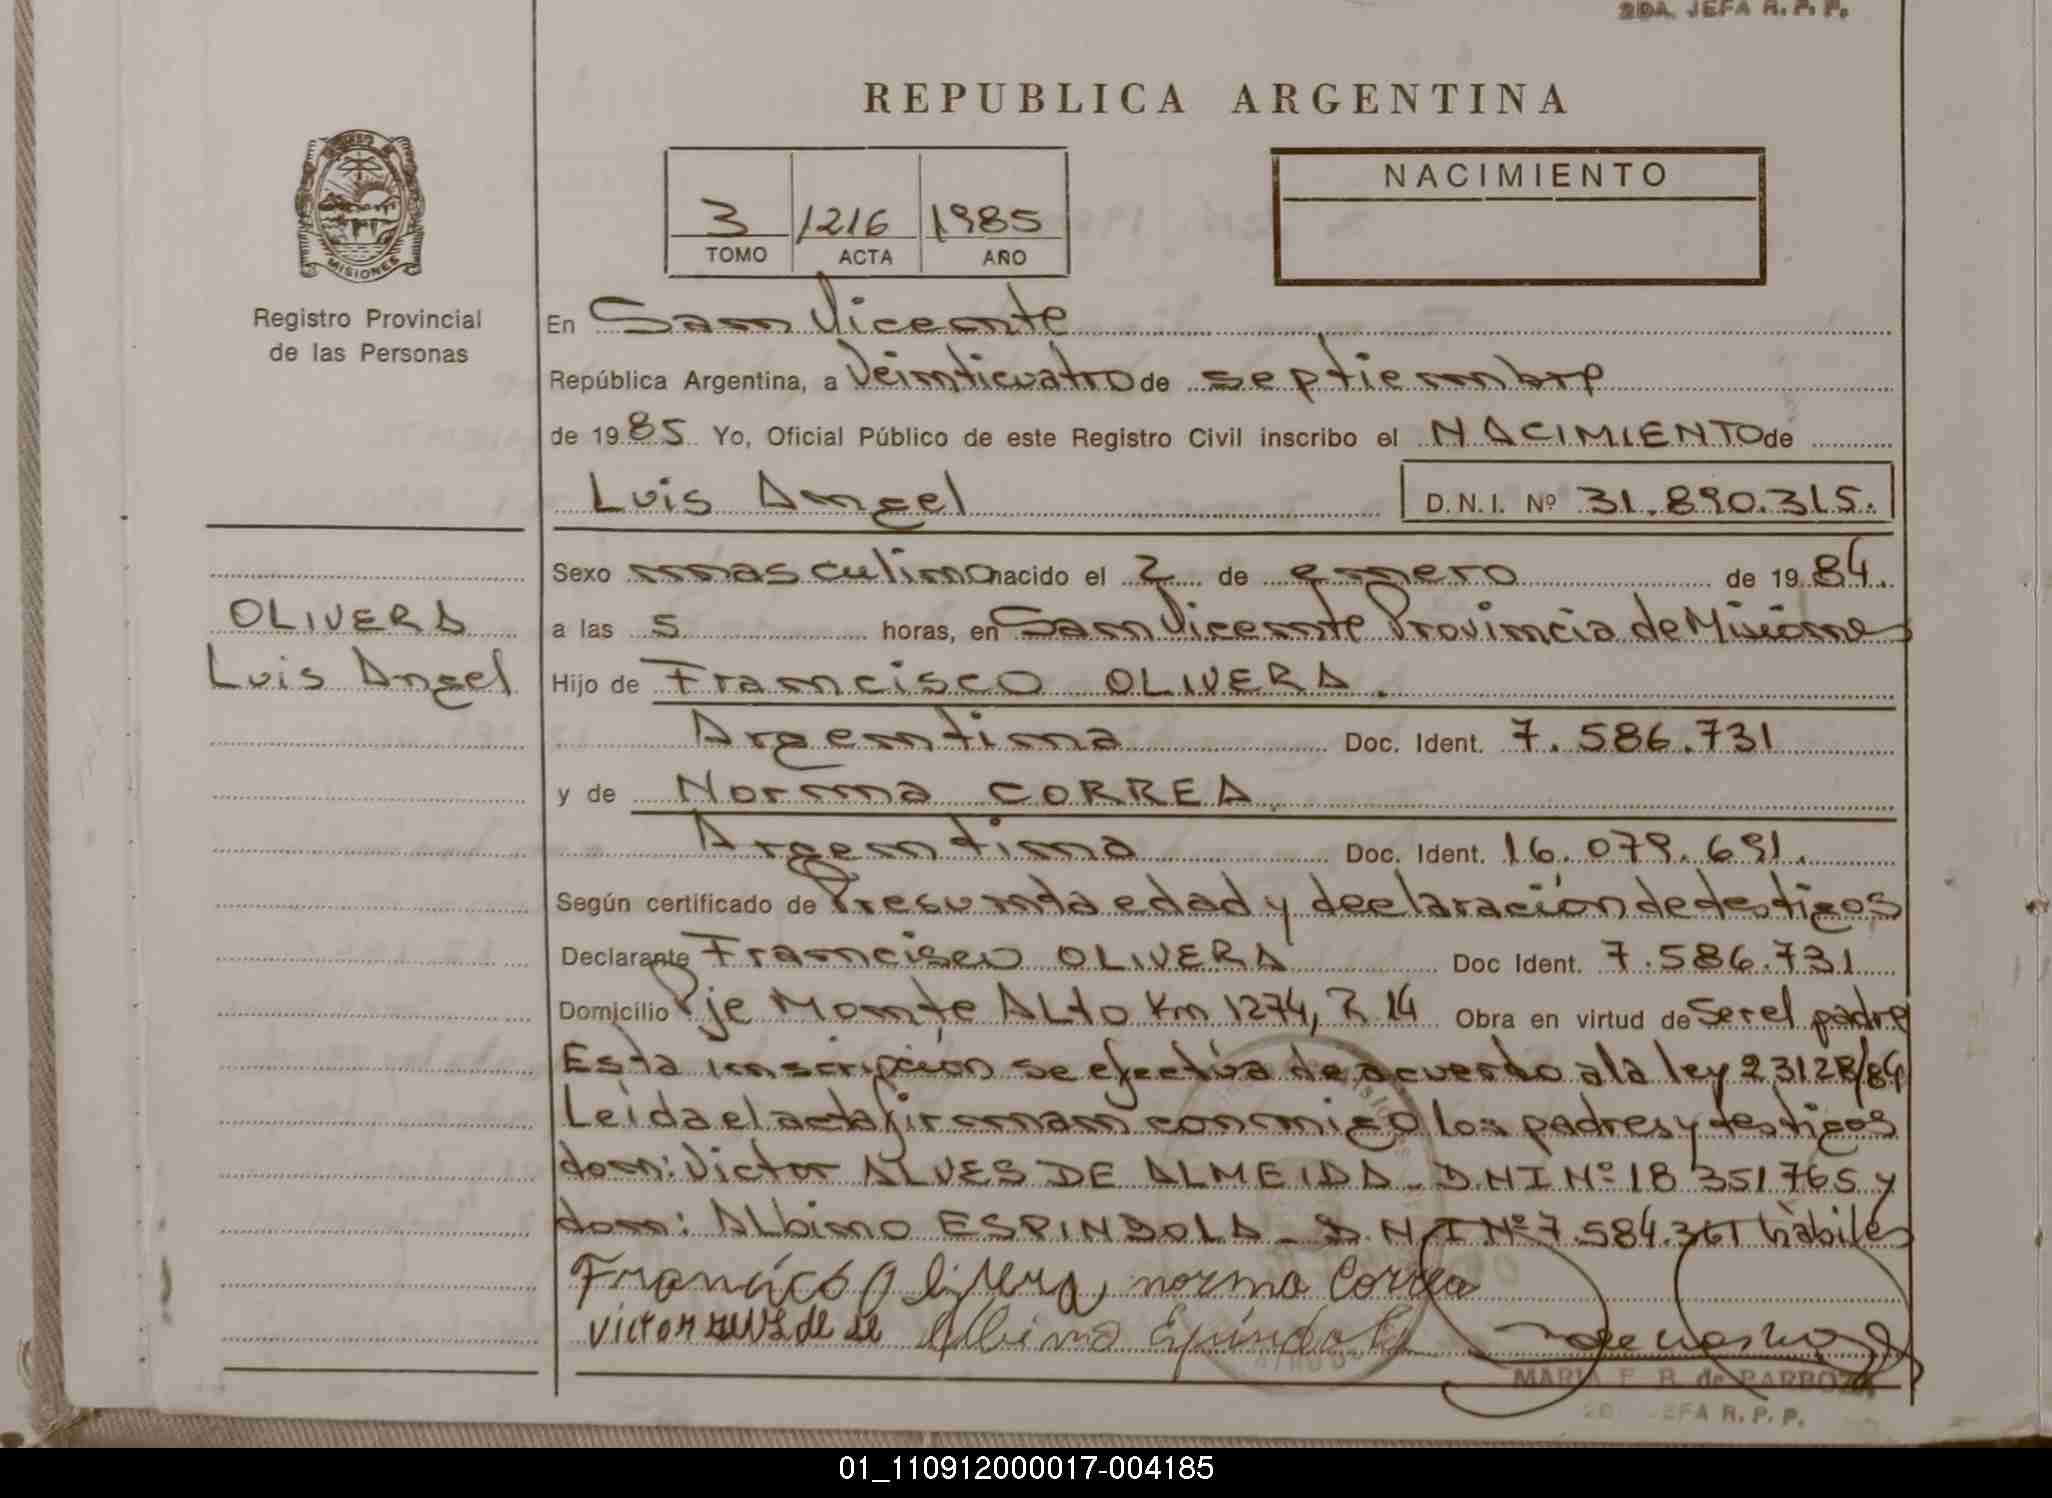 2DA. JEFA R. P. P.
REPUBLICA ARGENTINA
NACIMIENTO
3 1216 1985
TOMO ACTA AÑO
MISIONES
Registro Provincial
de las Personas
En San Vicente
República Argentina, a Veinticuatro de septiembre
de 1985 Yo, Oficial Público de este Registro Civil inscribo el NACIMIENTO de
Luis Angel D.N.I. Nº 31.890.315.
OLIVERA
Luis Angel
Sexo masculino nacido el 2 de enero de 1984.
a las 5 horas, en San Vicente Provincia de Misiones
Hijo de Francisco OLIVERA.
Argentina Doc. Ident. 7.586.731
y de Norma CORREA
Argentina Doc. Ident. 16.079.691.
Según certificado de Presunta edad y declaración de testigos
Declarante Francisco OLIVERA Doc Ident. 7.586.731
Domicilio Pje Monte Alto Km 1274, R 14 Obra en virtud de Ser el padre
Esta inscripción se efectúa de acuerdo a la ley 23128/84
Leida el acta firman conmigo los padres y testigos
don: Victor ALVES DE ALMEIDA - DNI Nº 18 351765 y
don: Albino ESPINDOLA - D.N.I Nº 7.584.361 hábiles
Francico Olivera norma Correa
victor de Albino Espindola
MARIA E. B. de BARBOZA
2DA JEFA R. P. P.
01_110912000017-004185